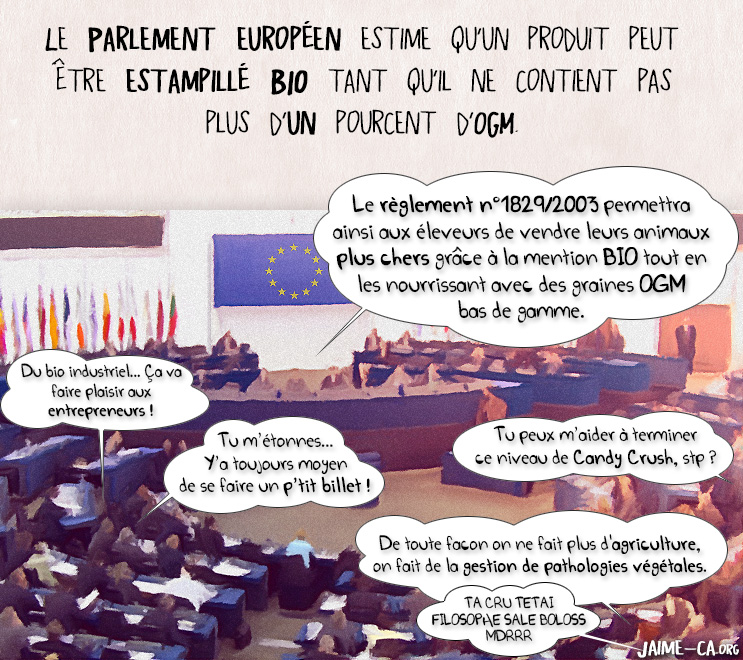 LE PARLEMENT EUROPÉEN ESTIME QU'UN PRODUIT PEUT
ÊTRE ESTAMPILLÉ BIO TANT QU'IL NE CONTIENT PAS
PLUS D'UN POURCENT D'OGM.
Le règlement n°1829/2003 permettra
ainsi aux éleveurs de vendre leurs animaux
plus chers grâce à la mention BIO tout en
les nourrissant avec des graines OGM
bas de gamme.
Du bio industriel... Ça va
faire plaisir aux
entrepreneurs !
Tu m'étonnes...
Y'a toujours moyen
de se faire un p'tit billet !
Tu peux m'aider à terminer
ce niveau de Candy Crush, stp ?
De toute façon on ne fait plus d'agriculture,
on fait de la gestion de pathologies végétales.
TA CRU TETAI
FILOSOPHE SALE BOLOSS
MDRRR
JAIME-CA.ORG